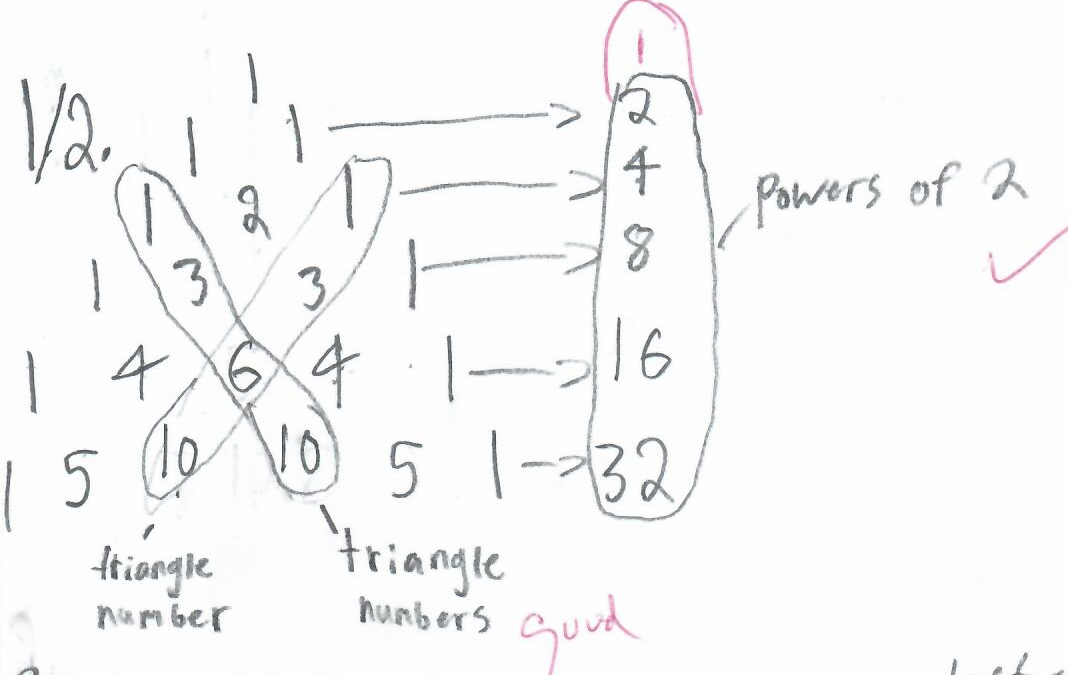 1/2.
1 1
1 1 2
1 2 1 4
1 3 3 1 8
1 4 6 4 1 16
1 5 10 10 5 1 32
powers of 2
triangle number
triangle numbers
good